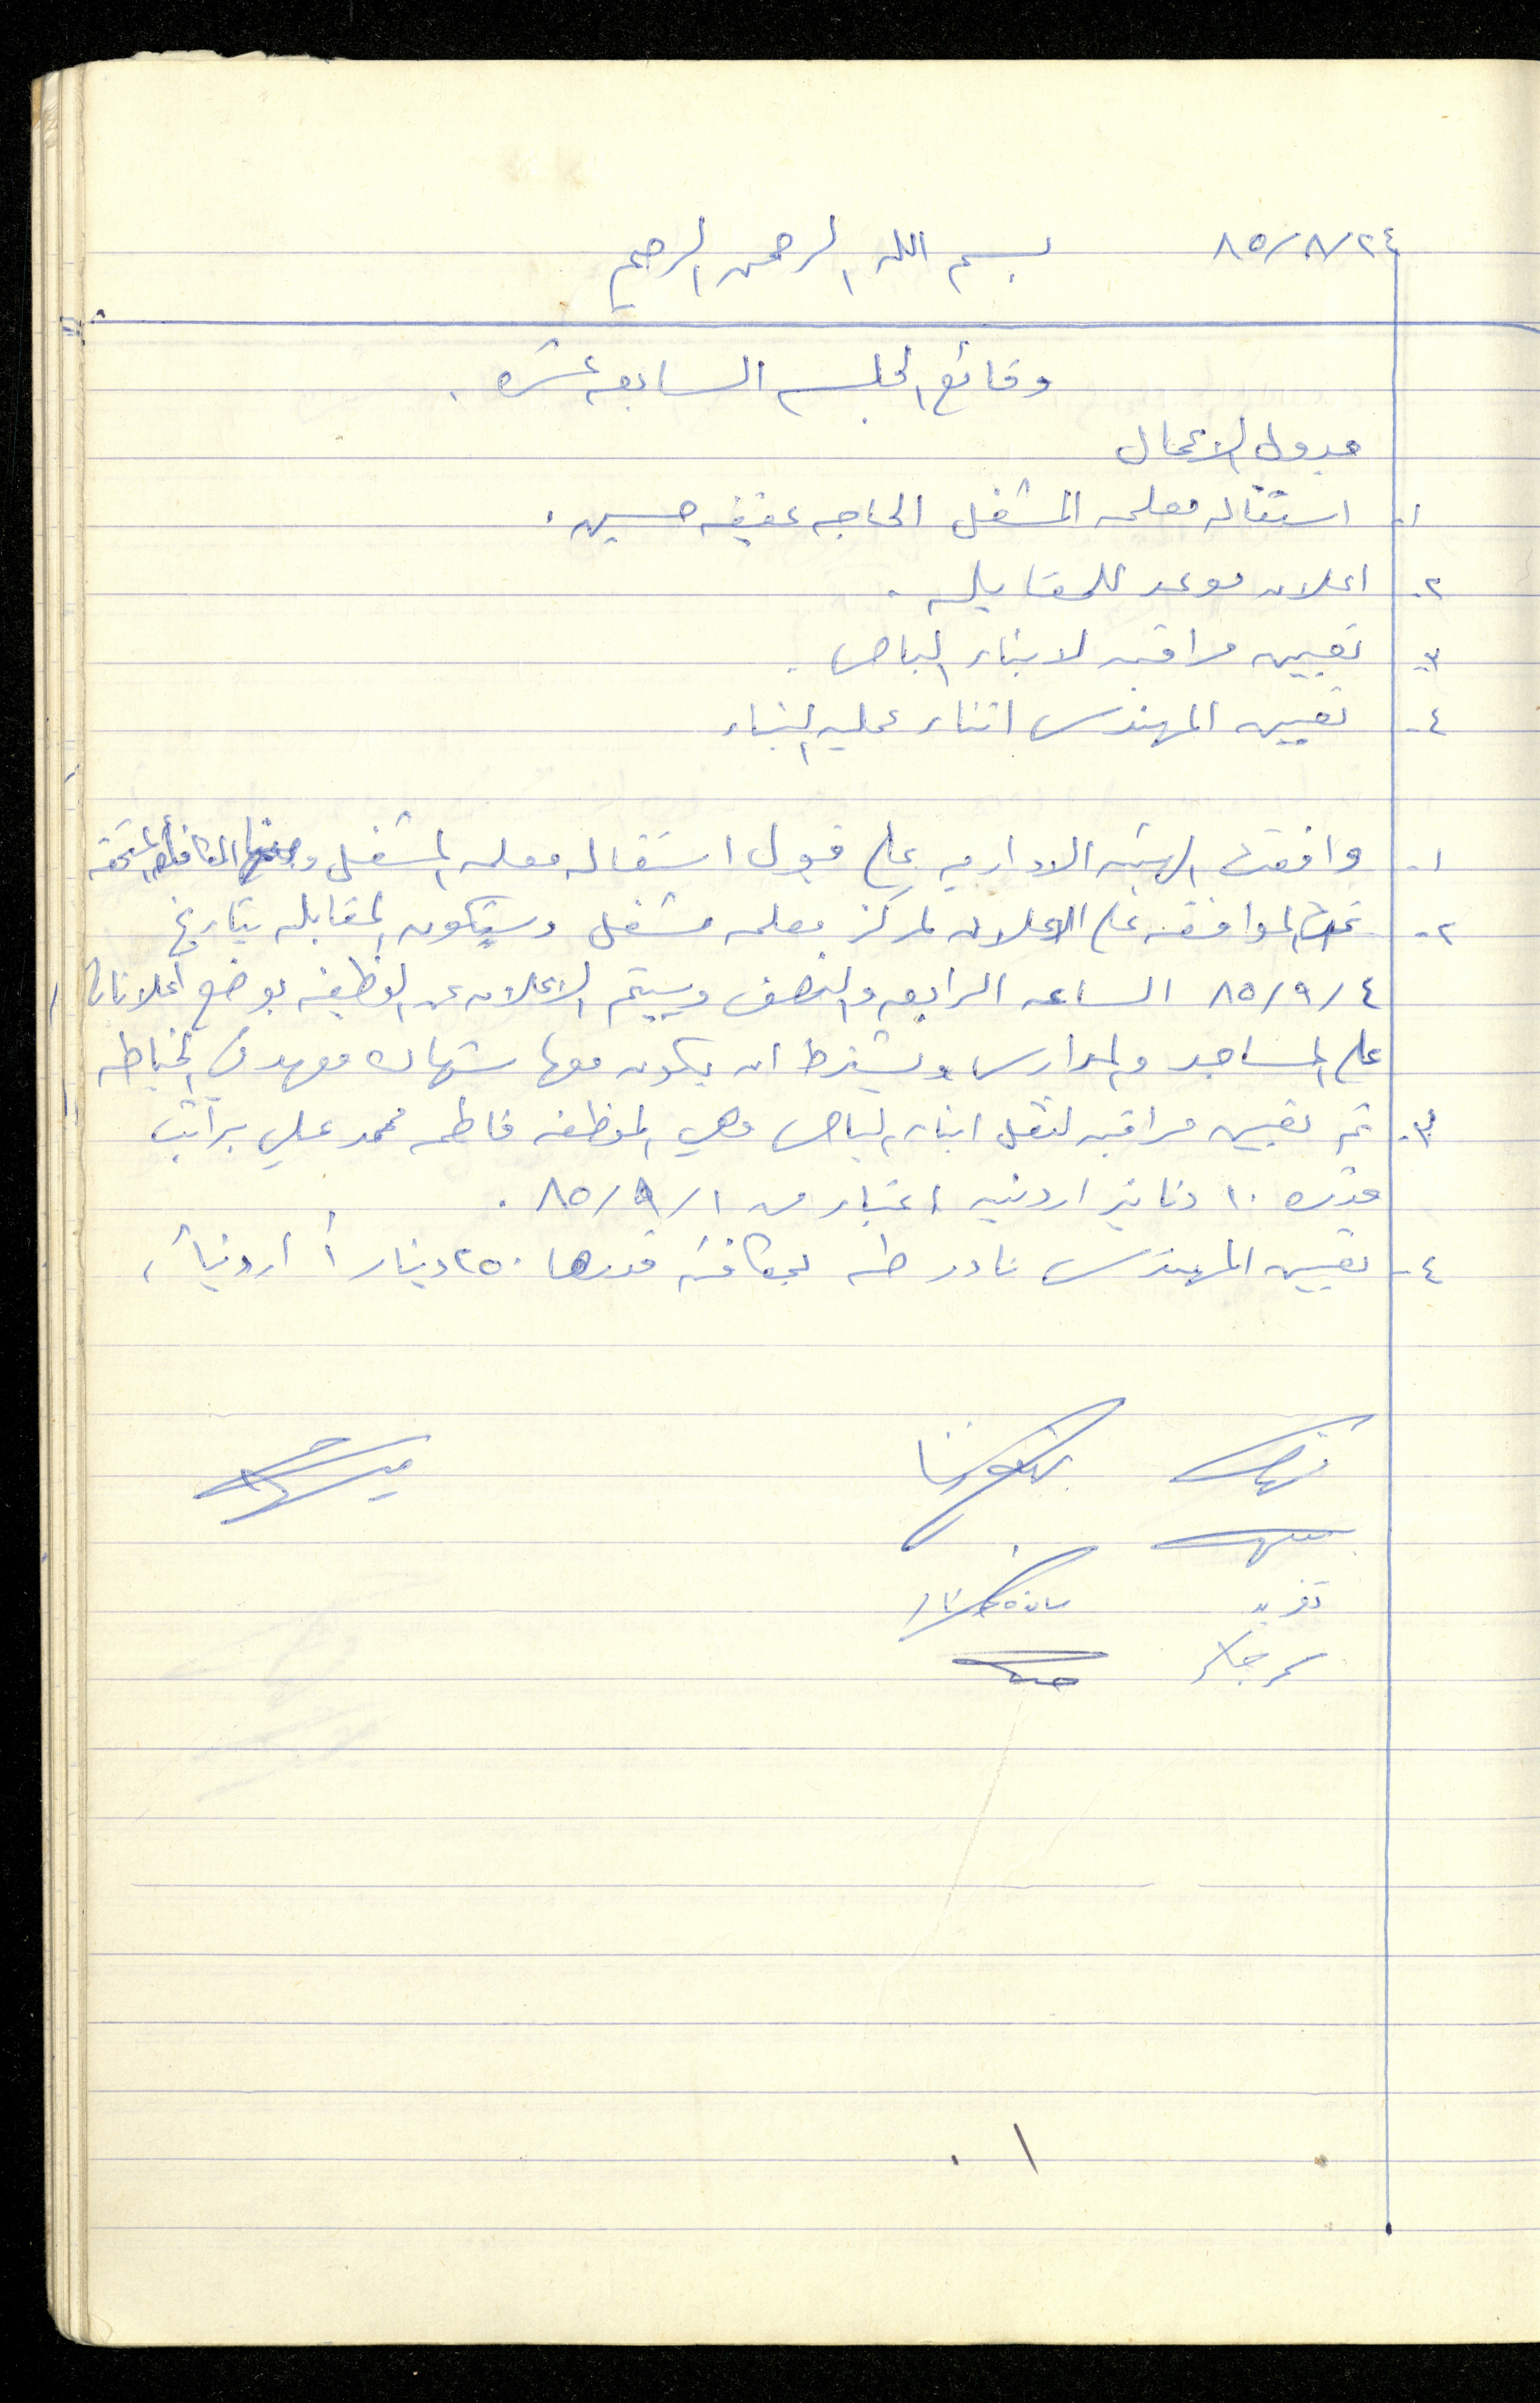 ٨٥/٨/٢٤ بسم الله الرحمن الرحيم
وقائع الجلسه السابعه عشره .
جدول الاعمال
١- استقاله معلمه المشغل الحاجه عفيفه حسين .
٢- اعلان موعد للمقابله .
٣- تعيين مراقبه لابناء الباص .
٤- تعيين المهندس اثناء عمليه البناء
١- وافقت الهيئه الاداريه على قبول استقاله معلمه المشغل المستحقه
٢- تمت الموافقه على الاعلان لمركز معلمه مشغل وستكون المقابله بتاريخ
٨٥/٩/٤ الساعه الرابعه والنصف وسيتم الاعلان عن الوظيفه بوضع اعلانات
على المساجد والمدارس ويشترط ان يكون معها شهاده معهد في الخياطه
٣- تم تعيين مراقبه لنقل ابناء الباص وهي الموظفه فاطمه محمد علي براتب
قدره ١٠ دنانير اردنيه اعتبار من ٨٥/٩/١ .
٤- تعيين المهندس نادر طه بمكافئه قدرها ٢٥٠ ديناراً أردنياً ،